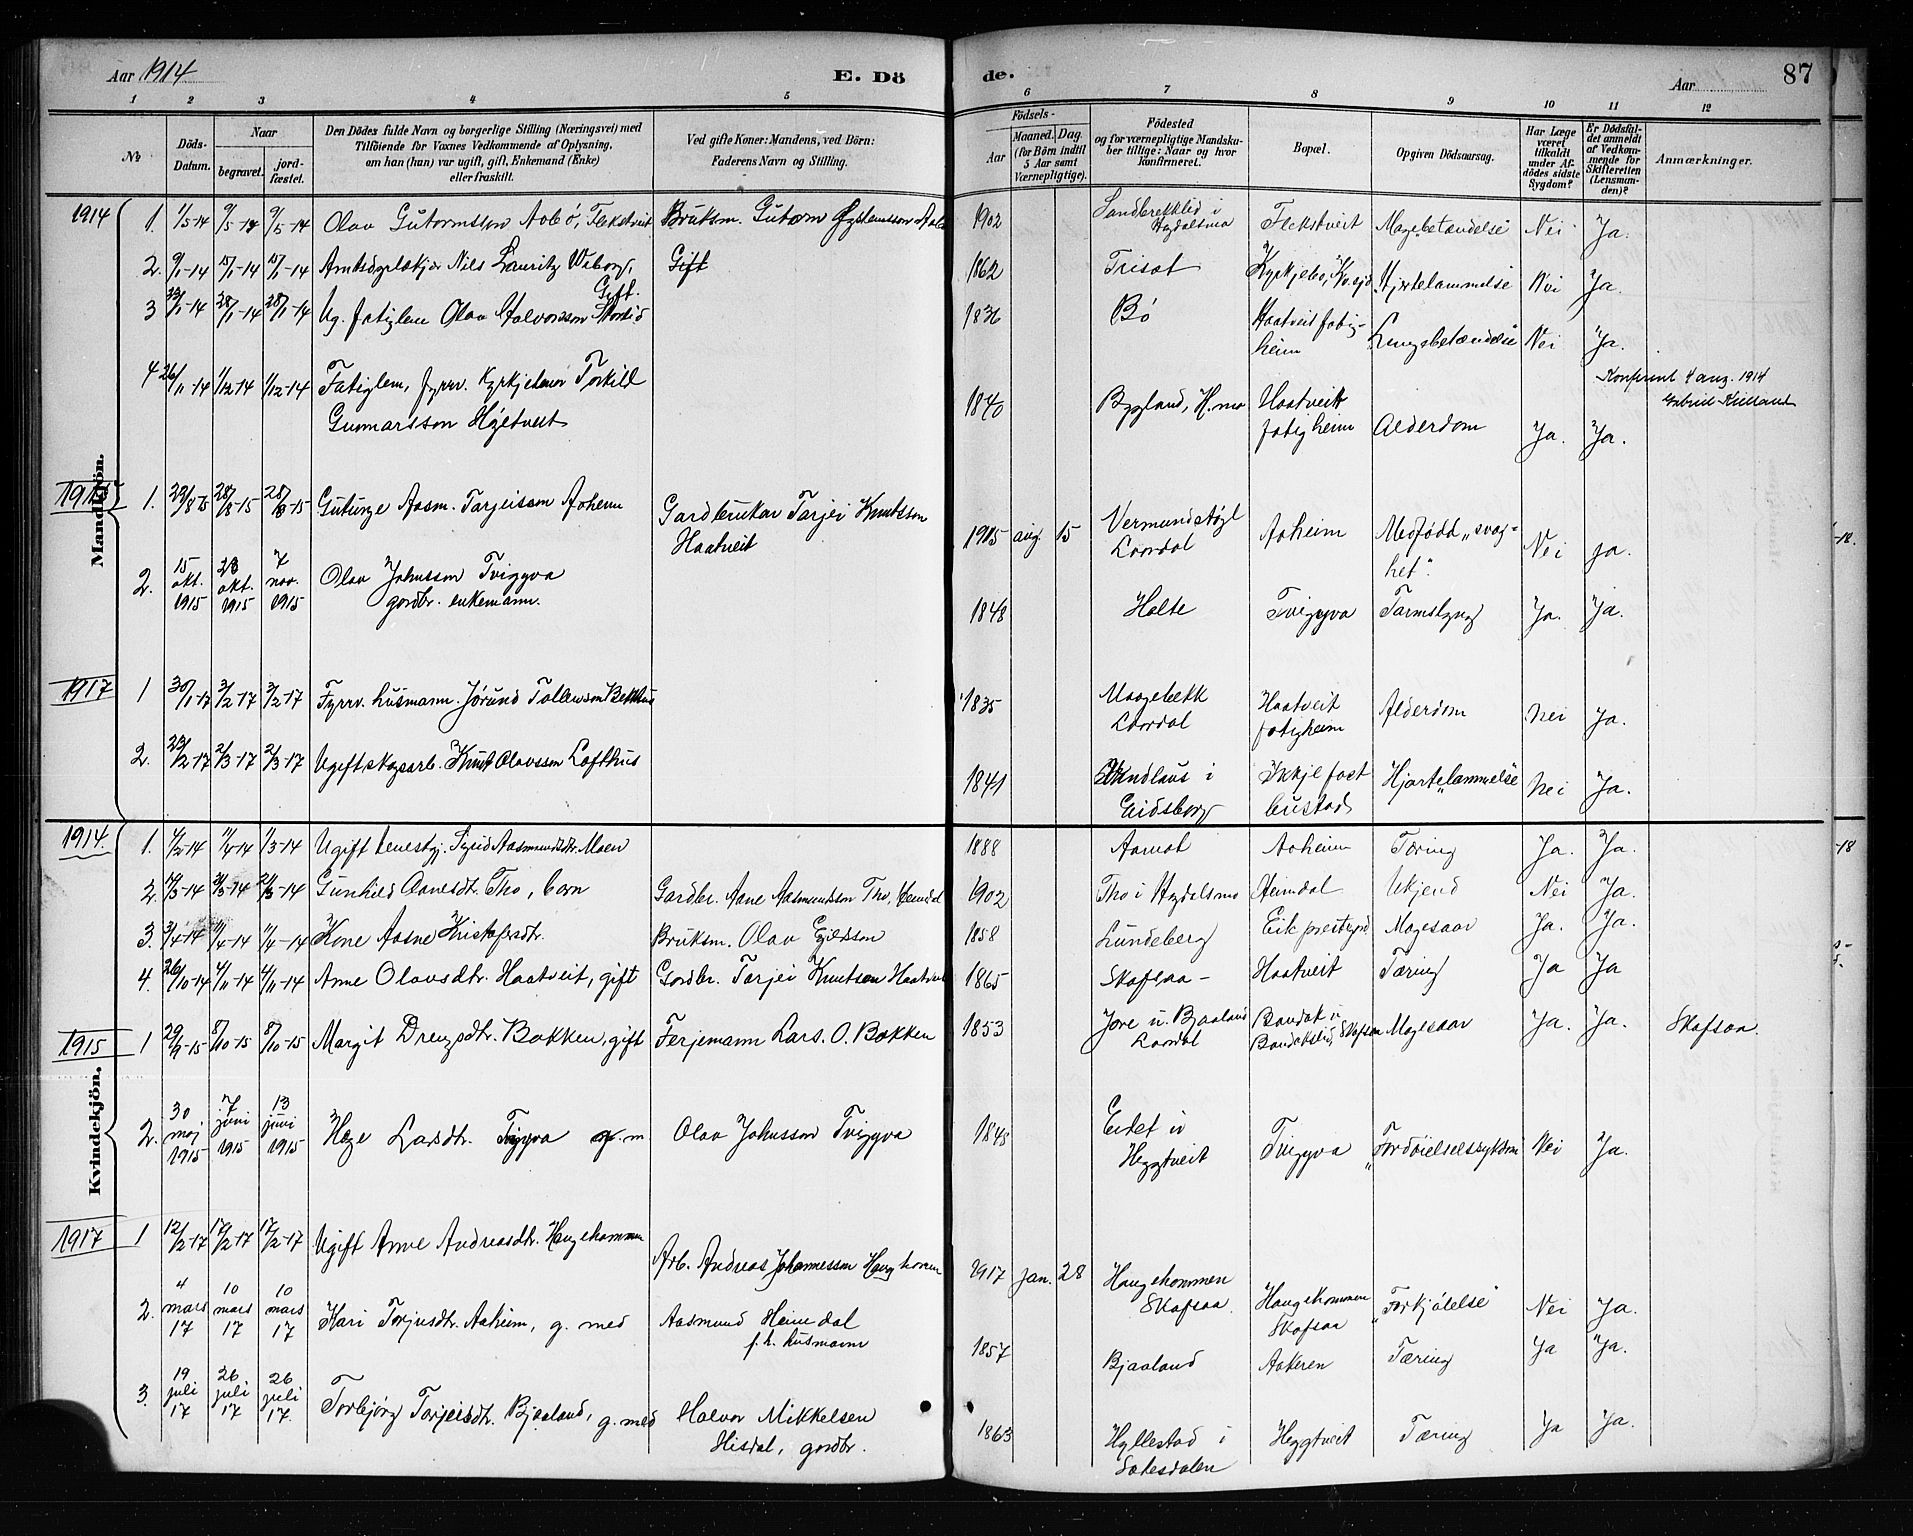 Aar 1914
E. Dö
de.
Aar
87
1 2 3 4 5 6 7 8 9 10 11 12
No
Döds-
Datum.
Naar
begravet.
jord-
fæstet.
Den Dödes fulde Navn og borgerlige Stilling (Næringsvei) med
Tilföiende for Voxnes Vedkommende af Oplysning,
om han (hun) var ugift, gift, Enkemand (Enke)
eller fraskilt.
Ved gifte Koner: Mandens, ved Börn:
Faderens Navn og Stilling.
Födsels-
Aar
Maaned.
Dag.
(for Börn indtil
5 Aar samt
Værnepligtige).
Födested
og for værnepligtige Mandska-
ber tillige: Naar og hvor
konfirmeret.
Bopæl.
Opgiven Dödsaarsag.
Har Læge
været
tilkaldt
under Af-
dödes sidste
Sygdom?
Er Dödsfal-
det anmeldt
af Vedkom-
mende for
Skifteretten
(Lensman-
den)?
Anmærkninger.
Mandkjön.
1914 1. 1/5-14 9/5-14 9/5-14 Olav Gutormsson Aabø, Flekstveit Bruksm. Gutorm Øysteinsson 1902 Sandbrekklid i Høydalsmo Flekstveit Magebetændelse Nei Ja.
2. 9/1-14 15/1-14 15/1-14 Nils Lauritz Wiborg, Gift. Gift 1862 Trisæt Hjertelammelse Nei Ja.
3 23/1-14 28/1-14 28/1-14 Ug. fatiglem Olav Halvorsson 1836 Bø Haatveit fatig-
heim Lungebetændelse Nei Ja.
Konferert 4 aug. 1914
Gabriel Kielland
4 26/11-14 1/12-14 1/12-14 Fatiglem, fyrrv. Kyrkjetenar Torkild
Gunnarsson Høgetveit 1840 Bygland, H.mo Haatveit
fatigheim Alderdom Ja. Ja.
1915 1. 23/8 15 28/8-15 28/8-15 Gutunge Aasm. Tarjeisson Aaheim Gardbrukar Tarjei Knutsson
Haatveit 1915 aug. 15 Vermundstøyl
Laardal Aaheim Medfødd „svag-
het". Nei Ja.
2. 15
okt.
1915 28
okt.
1915 7
nov.
1915 Olav Johnsson Tviggva
gardbr. enkemann. 1848 Holte Tviggva Tarmslyng Ja. Ja.
1917 1 30/1-17 3/2-17 3/2-17 Fyrrv. husmann Jørund Tollevsson Bekkhus 1835 Maagebekk
Laardal Haatveit
fatigheim Alderdom Nei Ja.
2. 23/2-17 2/3-17 2/3-17 Ugift skogsarb. Knut Olavsson Lofthus 1841 i
Eidsborg Ikkje fast
bustad Hjartelammelse Nei Ja.
Kvindekjön.
1914. 1. 4/2-14 1/3-14 Ugift tenestgj. Sigrid Aasmundsdtr. Moen 1888 Aamot Aaheim Tæring Ja. Ja.
2. 14/3-14 21/3-14 21/3-14 Gunhild Aanesdtr. Tho, barn Gardbr. Aane Aasmundsson Tho, Heimdal 1902 Tho i Høydalsmo Heimdal Ukjend Nei Ja.
3. 3/4-14 11/4-14 11/4-14 Kone Aasne Kristofersdtr. Bruksm. Olav Gjelsson 1858 Lundeberg Eik prestegrd Magesaar Ja. Ja.
4. 26/10-14 4/11-14 4/11-14 Anne Olavsdtr. Haatveit, gift Gardbr. Tarjei Knutson Haatveit 1865 Skafsaa - Haatveit Tæring Ja Ja
1915 1 29/9-15 8/10-15 8/10-15 Margit Drengsdtr. Bakken, gift Ferjemann Lars O. Bakken 1853 Jore u. Bjaaland
Laardal Bandak u
Bandakslid, Skafsaa Magesaar Ja. Ja. Skafsaa.
2. 30
maj
1915 7
juni
1915 13
juni
1915 Hæge Larsdtr. Tviggva g. m. Olav Johnsson Tviggva 1848 Eidet u
Heggtveit Tviggva „Fordøielsessykdom Nei Ja.
1917 1 12/2-17 17/2-17 17/2-17 Ugift Anne Andreasdtr. Haugekommen Arb. Andreas Johannesson Haugkomm 1917 jan. 28 Haugekommen
Skafsaa. Haugekommen
Skafsaa „Forkjølelse" Nei Ja.
2. 4
mars
17 10
mars
17 10
mars
17 Kari Torjusdtr. Aaheim, g. med Aasmund Heimdal
f. h. husmann 1857 Bjaaland Aakeren Tæring Ja Ja.
3. 19
juli
17 26
juli
17 26
juli
17. Torbjørg Tarjeisdtr. Bjaaland, g. med Halvor Mikkelsen
Hisdal, gardbr. 1863 Hyllestad i
Sætesdalen Heggtveit Tæring Ja Ja.